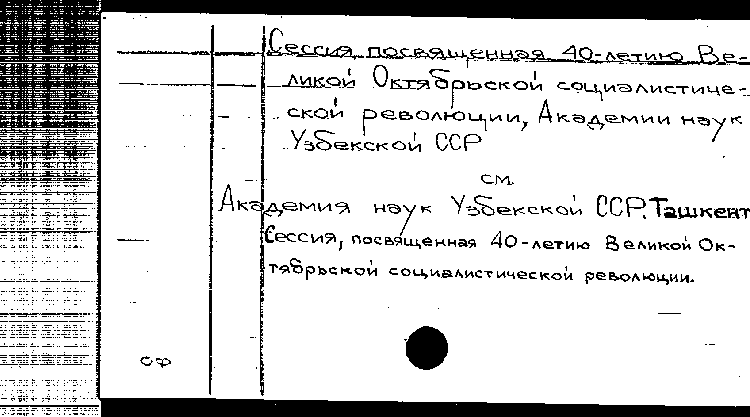 Сессия, посвященная 40-летию Ве-
ликой Октябрьской социалистиче-
ской революции, Академии наук
Узбекской ССР
см.
Академия наук Узбекской ССР. Ташкент
Сессия, посвященная 40-летию Великой Ок-
тябрьской социалистической революции.
СФ